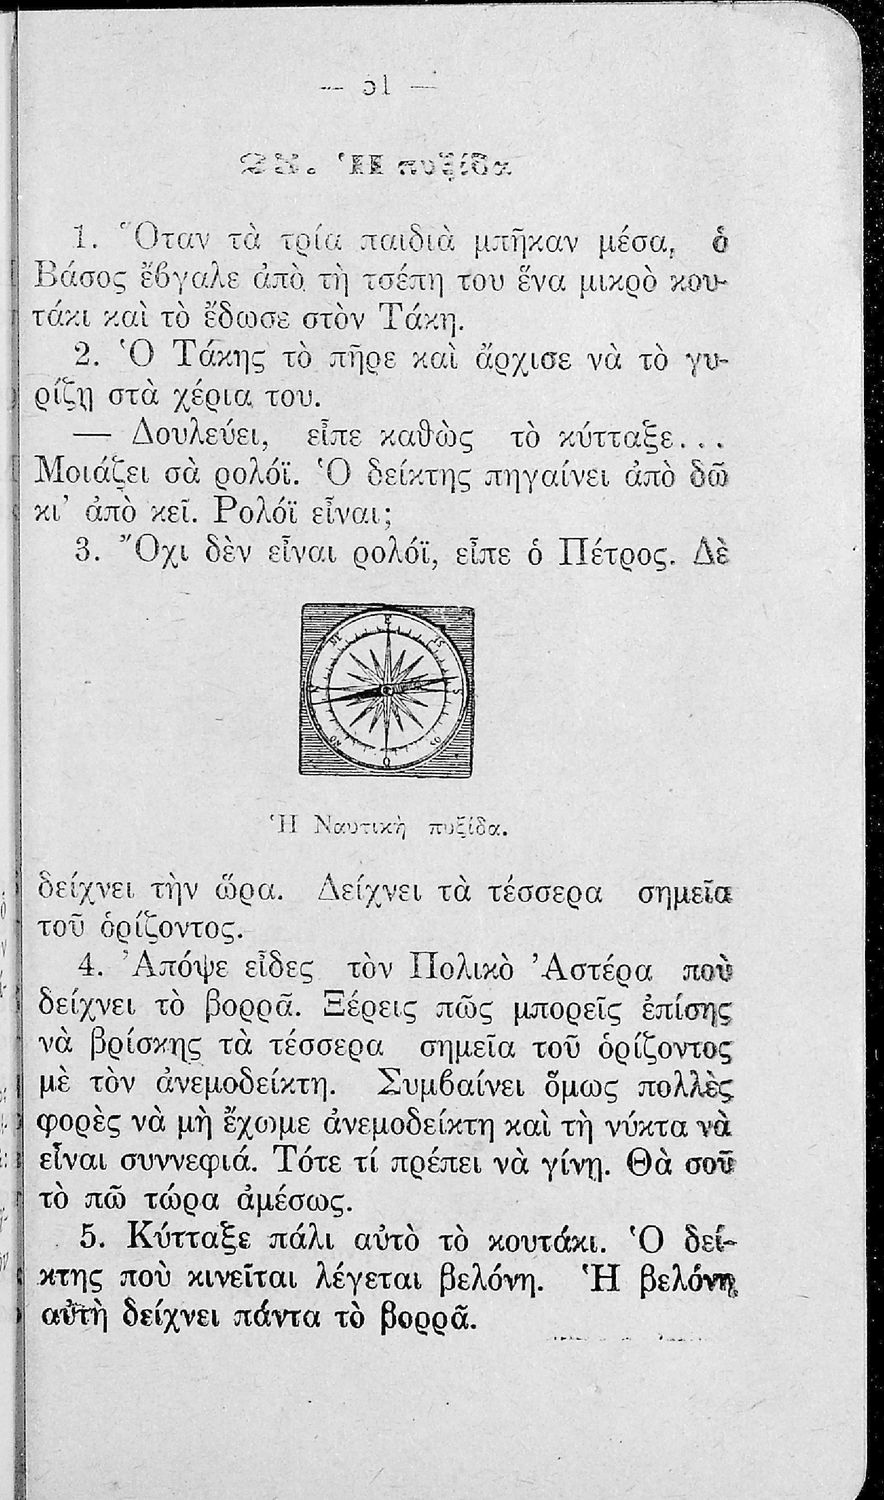 — 51 —
28. Ἡ πυξίδα
1. Ὅταν τὰ τρία παιδιὰ μπῆκαν μέσα, ὁ
Βάσος ἔβγαλε ἀπὸ τὴ τσέπη του ἕνα μικρὸ κου-
τάκι καὶ τὸ ἔδωσε στὸν Τάκη.
2. Ὁ Τάκης τὸ πῆρε καὶ ἄρχισε νὰ τὸ γυ-
ρίζῃ στὰ χέρια του.
— Δουλεύει, εἶπε καθὼς τὸ κύτταξε...
Μοιάζει σὰ ρολόϊ. Ὁ δείκτης πηγαίνει ἀπὸ δῶ
κι’ ἀπὸ κεῖ. Ρολόϊ εἶναι;
3. Ὄχι δὲν εἶναι ρολόϊ, εἶπε ὁ Πέτρος. Δὲ
Ἡ Ναυτικὴ πυξίδα.
δείχνει τὴν ὥρα. Δείχνει τὰ τέσσερα σημεῖα
τοῦ ὁρίζοντος.
4. Ἀπόψε εἶδες τὸν Πολικὸ Ἀστέρα ποὺ
δείχνει τὸ βορρᾶ. Ξέρεις πῶς μπορεῖς ἐπίσης
νὰ βρίσκῃς τὰ τέσσερα σημεῖα τοῦ ὁρίζοντος
μὲ τὸν ἀνεμοδείκτη. Συμβαίνει ὅμως πολλὲς
φορὲς νὰ μὴ ἔχωμε ἀνεμοδείκτη καὶ τὴ νύκτα νὰ
εἶναι συννεφιά. Τότε τί πρέπει νὰ γίνῃ. Θὰ σοῦ
τὸ πῶ τώρα ἀμέσως.
5. Κύτταξε πάλι αὐτὸ τὸ κουτάκι. Ὁ δεί-
κτης ποὺ κινεῖται λέγεται βελόνη. Ἡ βελόνη
αὐτὴ δείχνει πάντα τὸ βορρᾶ.